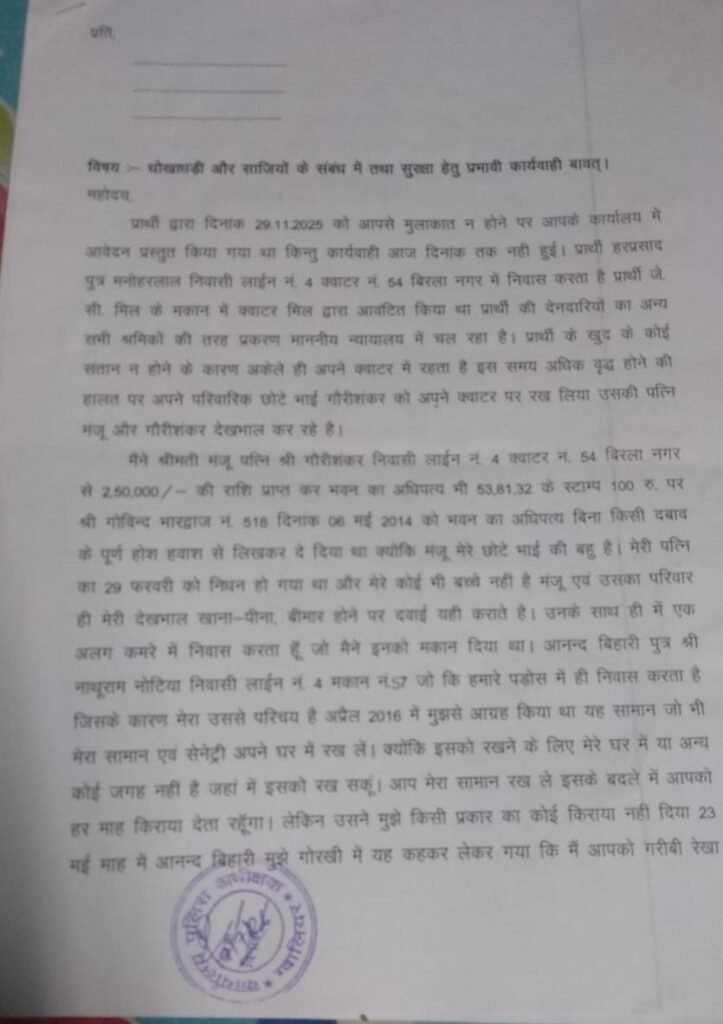 प्रति,
विषय :– धोखाधड़ी और साजियों के संबंध में तथा सुरक्षा हेतु प्रभावी कार्यवाही बावत्।
महोदय,
प्रार्थी द्वारा दिनांक 29.11.2025 को आपसे मुलाकात न होने पर आपके कार्यालय में
आवेदन प्रस्तुत किया गया था किन्तु कार्यवाही आज दिनांक तक नही हुई। प्रार्थी हरप्रसाद
पुत्र मनोहरलाल निवासी लाईन नं. 4 क्वाटर नं. 54 बिरला नगर में निवास करता है प्रार्थी जे.
सी. मिल के मकान में क्वाटर मिल द्वारा आवंटित किया था प्रार्थी की देनदारियों का अन्य
सभी श्रमिकों की तरह प्रकरण माननीय न्यायालय में चल रहा है। प्रार्थी के खुद के कोई
संतान न होने के कारण अकेले ही अपने क्वाटर में रहता है इस समय अधिक वृद्ध होने की
हालत पर अपने परिवारिक छोटे भाई गौरीशंकर को अपने क्वाटर पर रख लिया उसकी पत्नि
मंजू और गौरीशंकर देखभाल कर रहे है।
मैने श्रीमती मंजू पत्नि श्री गौरीशंकर निवासी लाईन नं. 4 क्वाटर नं. 54 बिरला नगर
से 2,50,000/– की राशि प्राप्त कर भवन का अधिपत्य भी 53,81,32 के स्टाम्प 100 रु. पर
श्री गोविन्द भारद्वाज नं. 518 दिनांक 06 मई 2014 को भवन का अधिपत्य बिना किसी दबाव
के पूर्ण होश हवाश से लिखकर दे दिया था क्योंकि मंजू मेरे छोटे भाई की बहु है। मेरी पत्नि
का 29 फरवरी को निधन हो गया था और मेरे कोई भी बच्चे नही है मंजू एवं उसका परिवार
ही मेरी देखभाल खाना–पीना, बीमार होने पर दवाई यही कराते है। उनके साथ ही में एक
अलग कमरे में निवास करता हूँ जो मैने इनको मकान दिया था। आनन्द बिहारी पुत्र श्री
नाथूराम नोटिया निवासी लाईन नं. 4 मकान नं.57 जो कि हमारे पडोस में ही निवास करता है
जिसके कारण मेरा उससे परिचय है अप्रैल 2016 में मुझसे आग्रह किया था यह सामान जो भी
मेरा सामान एवं सेनेट्री अपने घर में रख लें। क्योंकि इसको रखने के लिए मेरे घर में या अन्य
कोई जगह नहीं है जहां में इसको रख सकूं। आप मेरा सामान रख ले इसके बदलें में आपको
हर माह किराया देता रहूँगा। लेकिन उसने मुझे किसी प्रकार का कोई किराया नही दिया 23
मई माह में आनन्द बिहारी मुझे गोरखी में यह कहकर लेकर गया कि मैं आपको गरीबी रेखा
कार्यालय पुलिस अधीक्षक
ग्वालियर